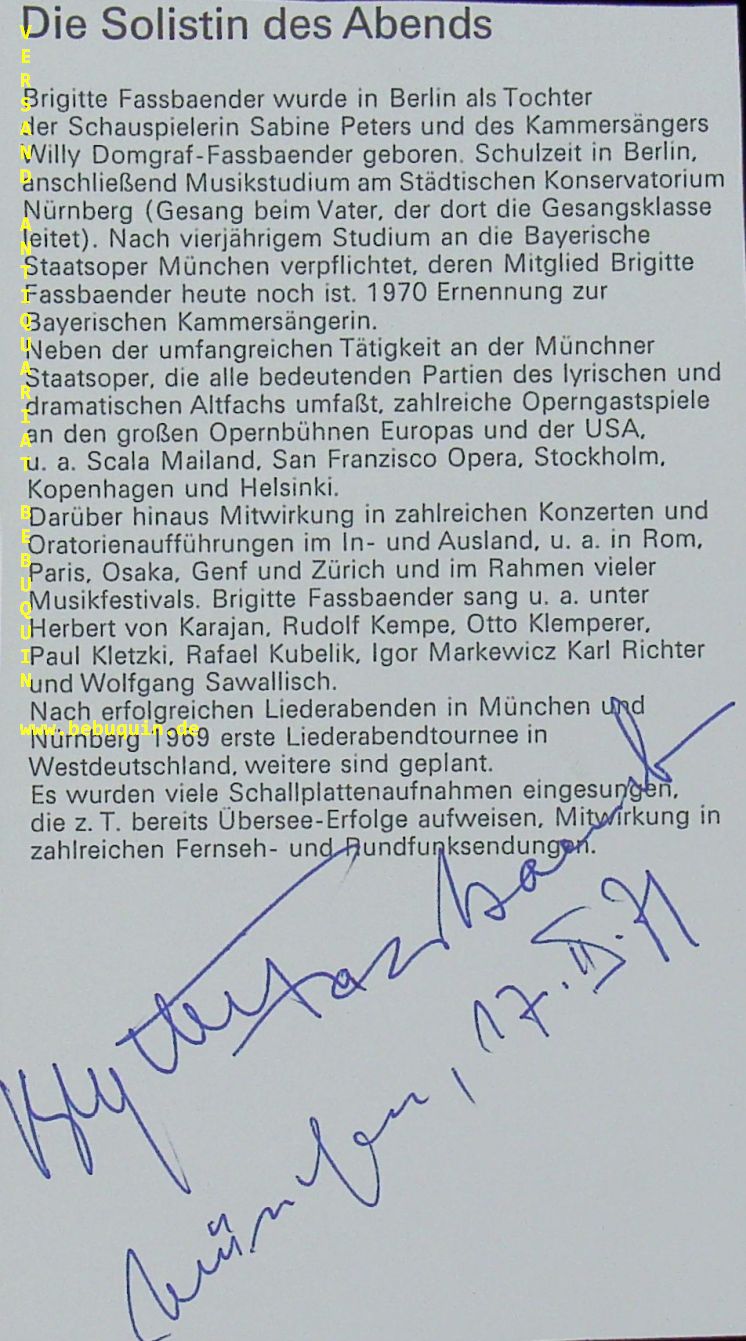 Die Solistin des Abends
Brigitte Fassbaender wurde in Berlin als Tochter
der Schauspielerin Sabine Peters und des Kammersängers
Willy Domgraf-Fassbaender geboren. Schulzeit in Berlin,
anschließend Musikstudium am Städtischen Konservatorium
Nürnberg (Gesang beim Vater, der dort die Gesangsklasse
leitet). Nach vierjährigem Studium an die Bayerische
Staatsoper München verpflichtet, deren Mitglied Brigitte
Fassbaender heute noch ist. 1970 Ernennung zur
Bayerischen Kammersängerin.
Neben der umfangreichen Tätigkeit an der Münchner
Staatsoper, die alle bedeutenden Partien des lyrischen und
dramatischen Altfachs umfaßt, zahlreiche Operngastspiele
an den großen Opernbühnen Europas und der USA,
u. a. Scala Mailand, San Franzisco Opera, Stockholm,
Kopenhagen und Helsinki.
Darüber hinaus Mitwirkung in zahlreichen Konzerten und
Oratorienaufführungen im In- und Ausland, u. a. in Rom,
Paris, Osaka, Genf und Zürich und im Rahmen vieler
Musikfestivals. Brigitte Fassbaender sang u. a. unter
Herbert von Karajan, Rudolf Kempe, Otto Klemperer,
Paul Kletzki, Rafael Kubelik, Igor Markewicz Karl Richter
und Wolfgang Sawallisch.
Nach erfolgreichen Liederabenden in München und
Nürnberg 1969 erste Liederabendtournee in
Westdeutschland, weitere sind geplant.
Es wurden viele Schallplattenaufnahmen eingesungen,
die z. T. bereits Übersee-Erfolge aufweisen, Mitwirkung in
zahlreichen Fernseh- und Rundfunksendungen.
Brigitte Fassbaender
München, 17. II. 71
VERSAND ANTIQUARIAT BEBUQUIN
www.bebuquin.de